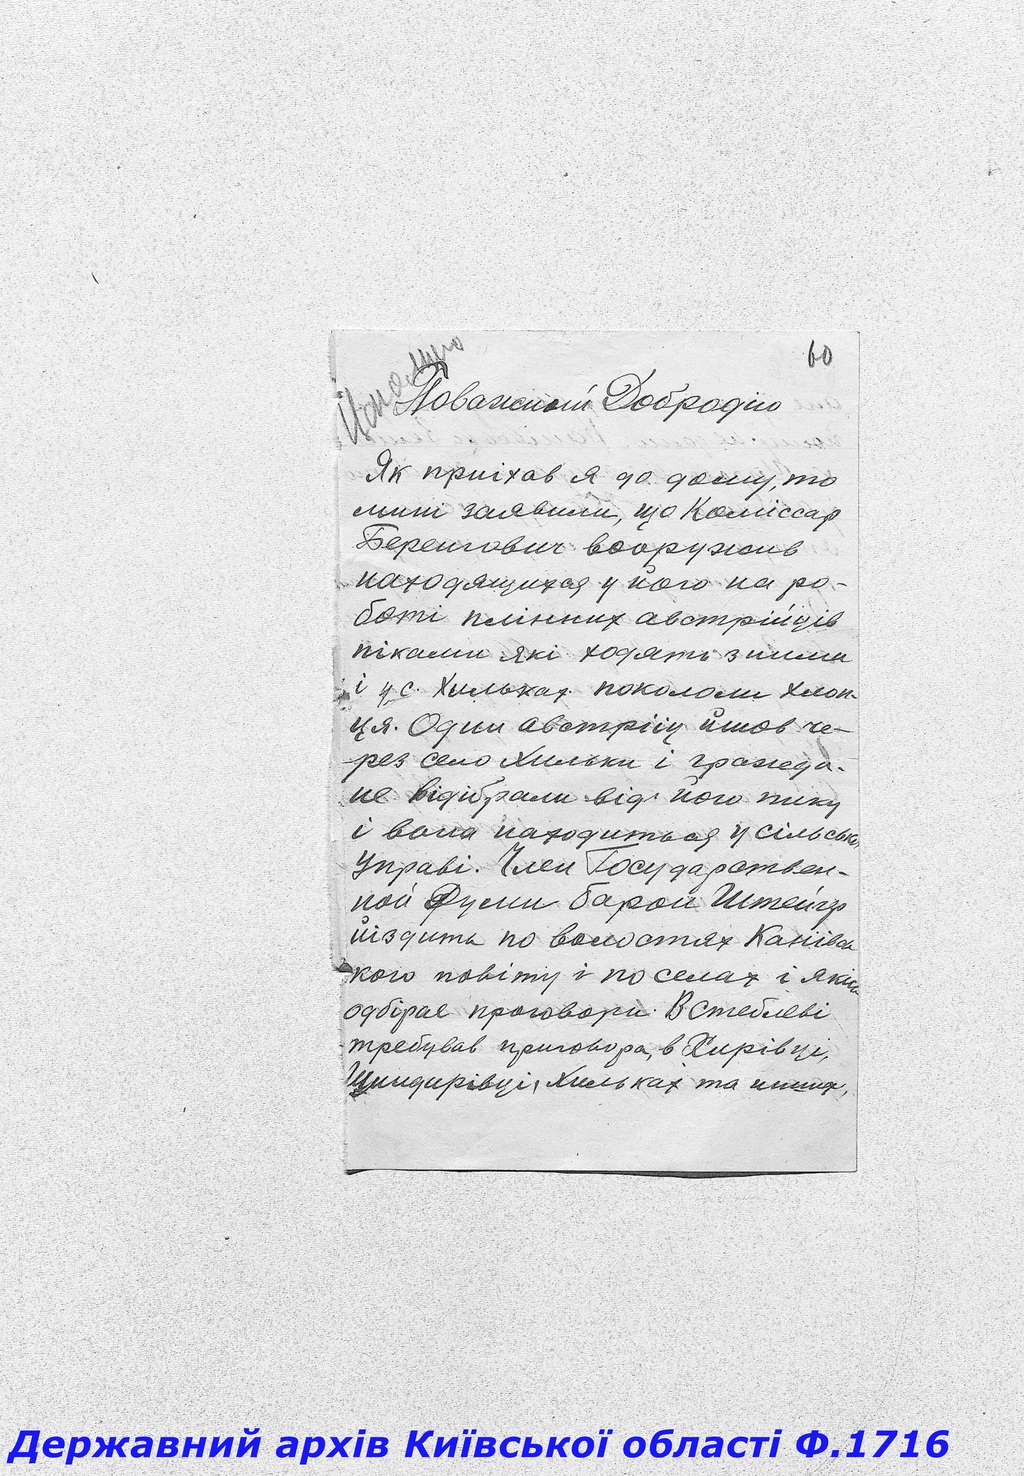 60
Поважний Добродію
Як приіхав я до дому, то
мині заявили, що Коміссар
Беренгович вооружив
находящихся у його на ро-
боті плінних австрійців
піками які ходять з ними
і у с. Хильках покололи хлоп-
ця. Один австріец йшов че-
рез село Хильки і гражда-
не відібрали від його пику
і вона находиться у сільські
Управі. Член Государствен-
ной Думи барон Штейгер
йіздить по волостях Канівсь
кого повіту і по селах і якісь
одбірае проговори. В Стеблеві
требував приговора, в Хирівці,
Шендирівці, Хильках та инших,
Державний архів Київської області Ф.1716